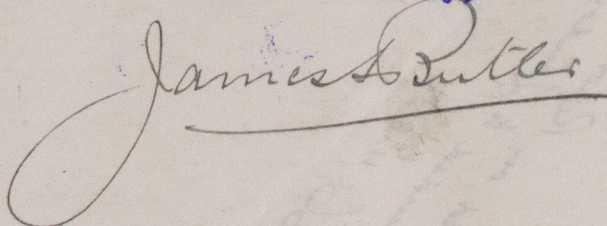 James A Butler